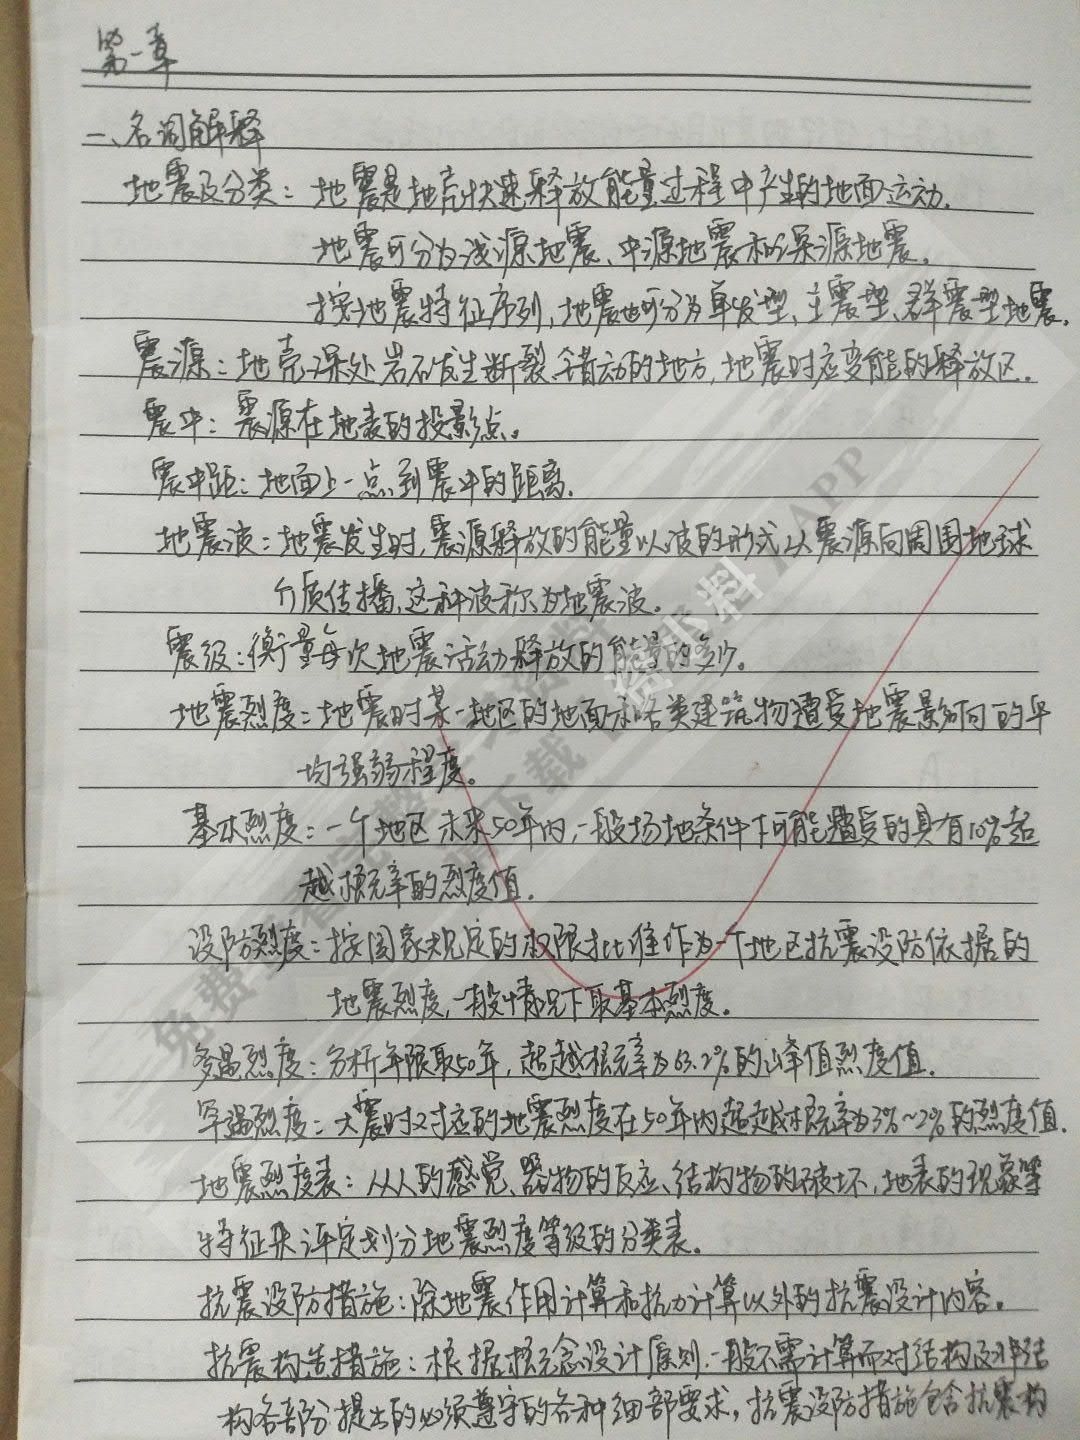 第一章
一、名词解释
地震及分类：地震是地壳快速释放能量过程中产生的地面运动.
地震可分为浅源地震、中源地震和深源地震。
按地震特征序列,地震也可分为单发型、主震型、群震型地震.
震源：地壳深处岩石发生断裂、错动的地方,地震时应变能的释放区.
震中：震源在地表的投影点。
震中距：地面上一点到震中的距离.
地震波：地震发生时,震源释放的能量以波的形式从震源向周围地球
介质传播,这种波称为地震波.
震级：衡量每次地震活动释放的能量的多少.
地震烈度：地震时某一地区的地面和各类建筑物遭受地震影响的平
均强弱程度。
基本烈度：一个地区未来50年内,一般场地条件下可能遭受的具有10%超
越概率的烈度值.
设防烈度：按国家规定的权限批准作为一个地区抗震设防依据的
地震烈度,一般情况下取基本烈度。
多遇烈度：分析年限取50年,超越概率为63.2%的峰值烈度值.
罕遇烈度：大震时对应的地震烈度在50年内超越概率为3%~2%的烈度值.
地震烈度表：从人的感觉、器物的反应、结构物的破坏,地表的现象等
特征来评定划分地震烈度等级的分类表。
抗震设防措施：除地震作用计算和抗力计算以外的抗震设计内容。
抗震构造措施：根据概念设计原则,一般不需计算而对结构及非结
构各部分提出的必须遵守的各种细部要求,抗震设防措施包含抗震构
免费查看完整学习资料
请下载【资小料】APP